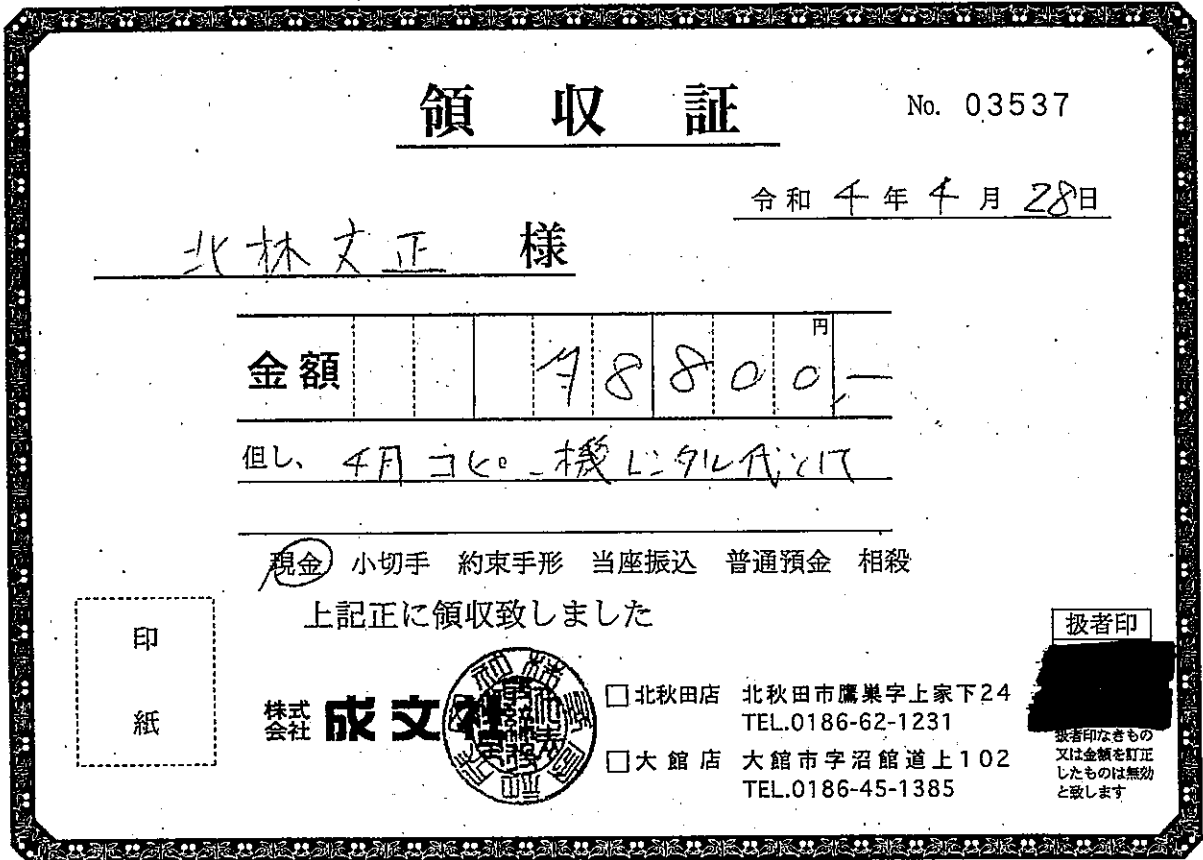 領収証
No. 03537
令和 4 年 4 月 28日
北林丈正 様
金額 ¥8800円.—
但し、 4月 コピー機レンタル代として
現金 小切手 約束手形 当座振込 普通預金 相殺
上記正に領収致しました
印紙
扱者印
株式会社 成文社
□北秋田店 北秋田市鷹巣字上家下24
TEL.0186-62-1231
□大館店 大館市字沼館道上102
TEL.0186-45-1385
扱者印なきもの
又は金額を訂正
したものは無効
と致します